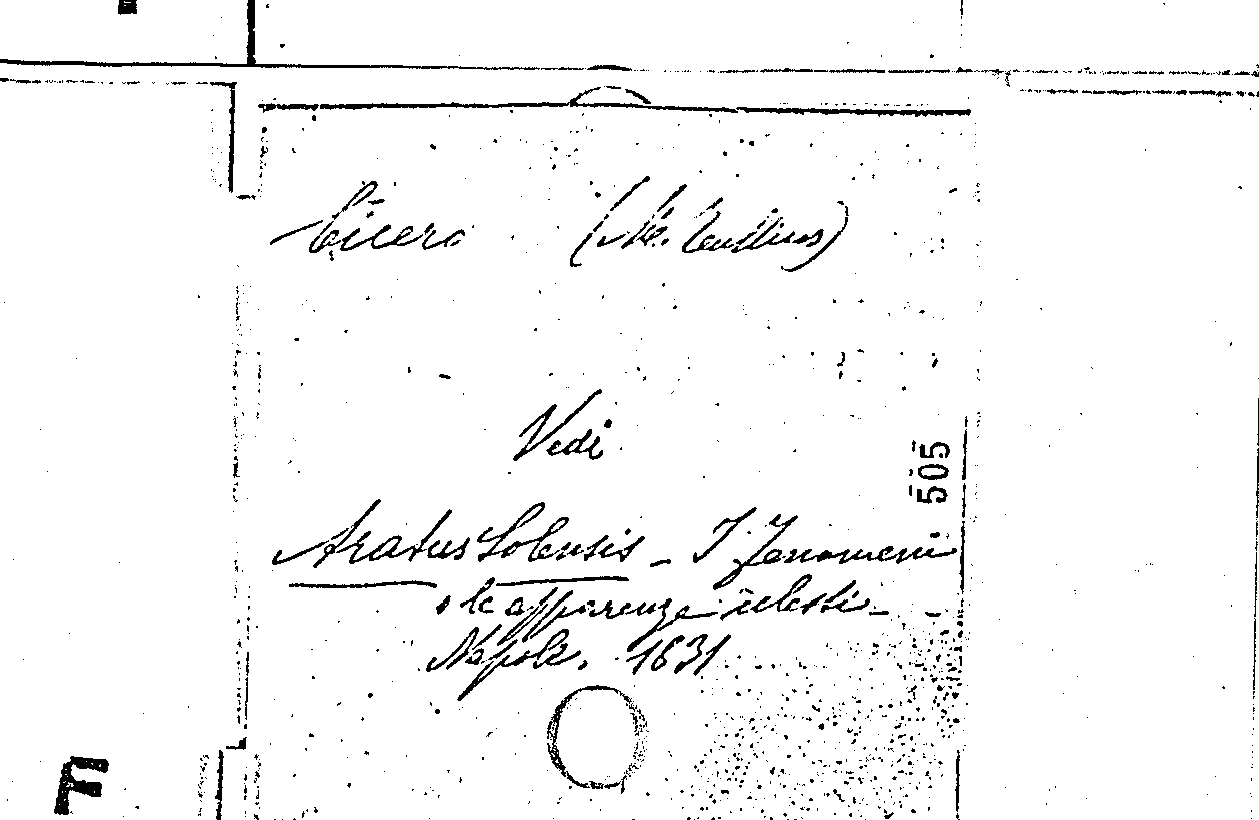 Cicero (M. Tullius)
Vedi
505
Aratus Solensis - I Fenomeni
o le apparenze celesti -
Napoli. 1631
F